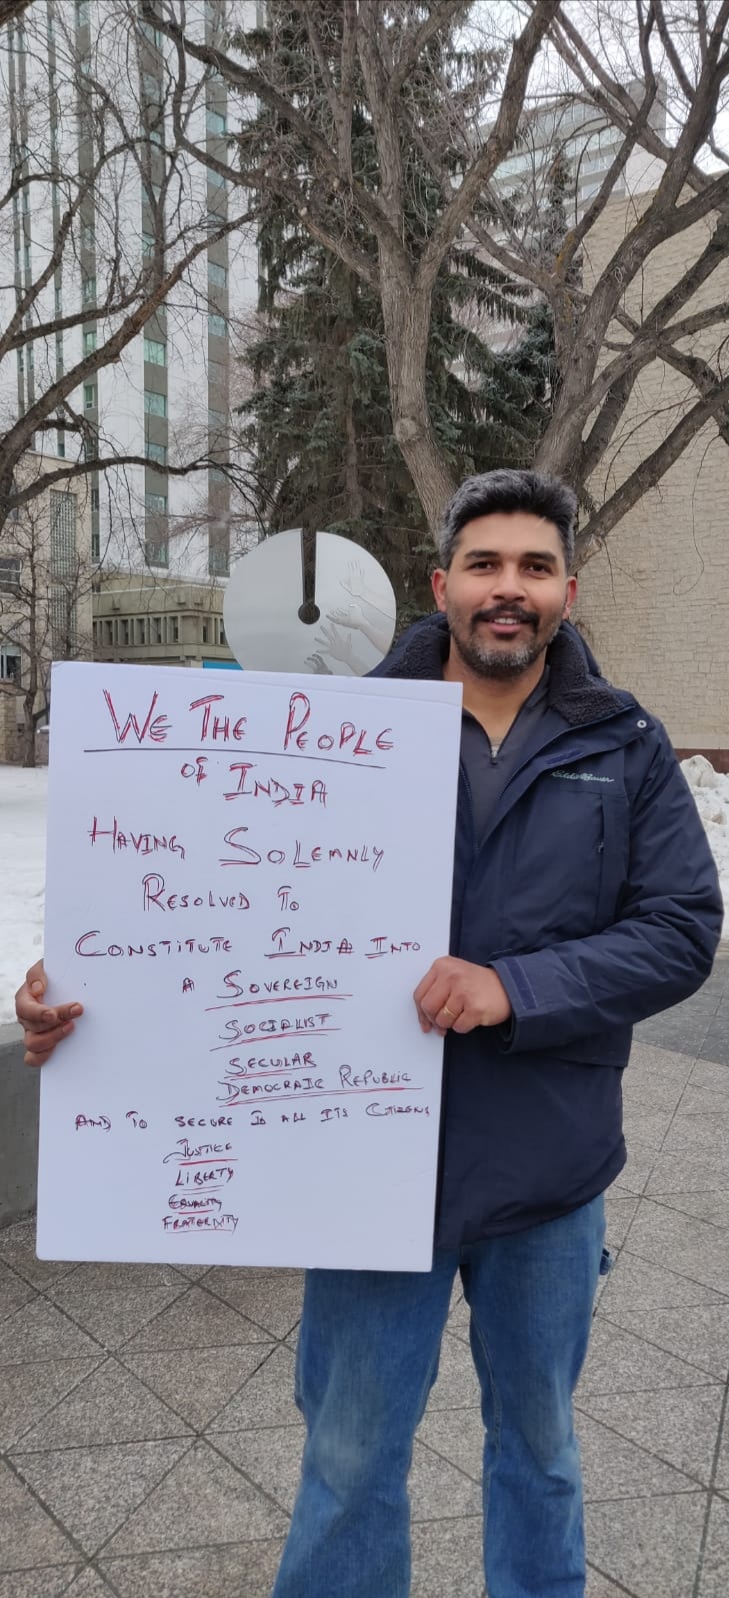 WE THE PEOPLE
OF INDIA
HAVING SOLEMNLY
RESOLVED TO
CONSTITUTE INDIA INTO
A SOVEREIGN
SOCIALIST
SECULAR
DEMOCRAIC REPUBLIC
AND TO SECURE TO ALL ITS CITIZENS
JUSTICE
LIBERTY
EQUALITY
FRATERNITY
Eddie Bauer